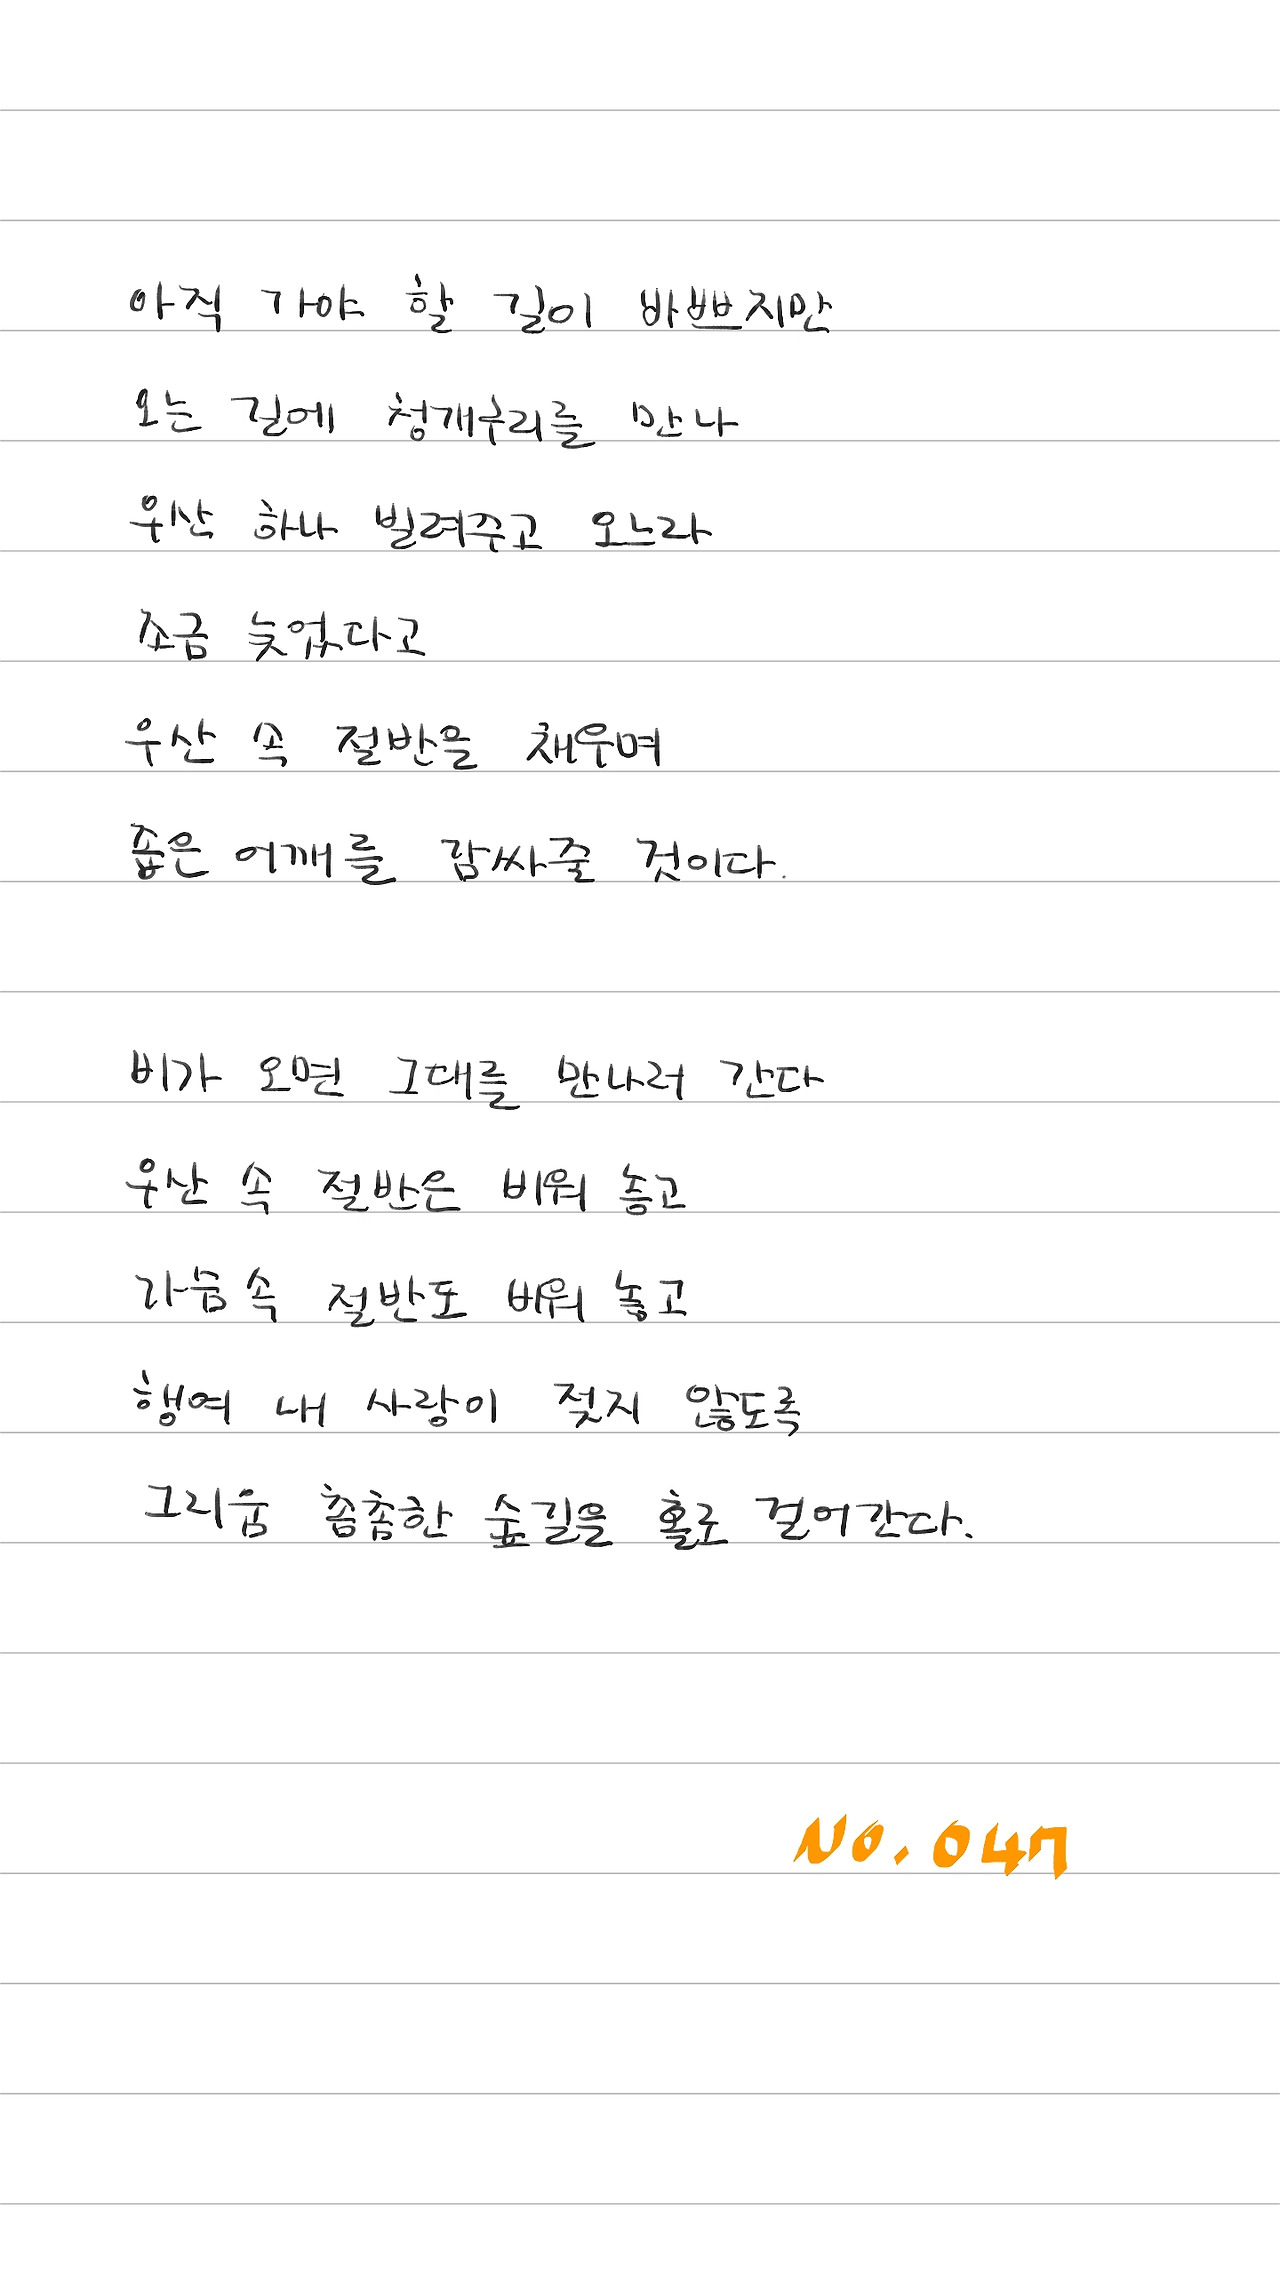 아직 가야 할 길이 바쁘지만
오는 길에 청개구리를 만나
우산 하나 빌려주고 오느라
조금 늦었다고
우산 속 절반을 채우며
좁은 어깨를 감싸줄 것이다.
비가 오면 그대를 만나러 간다
우산 속 절반은 비워 놓고
가슴 속 절반도 비워 놓고
행여 내 사랑이 젖지 않도록
그리움 촘촘한 숲길을 홀로 걸어간다.
No. 047